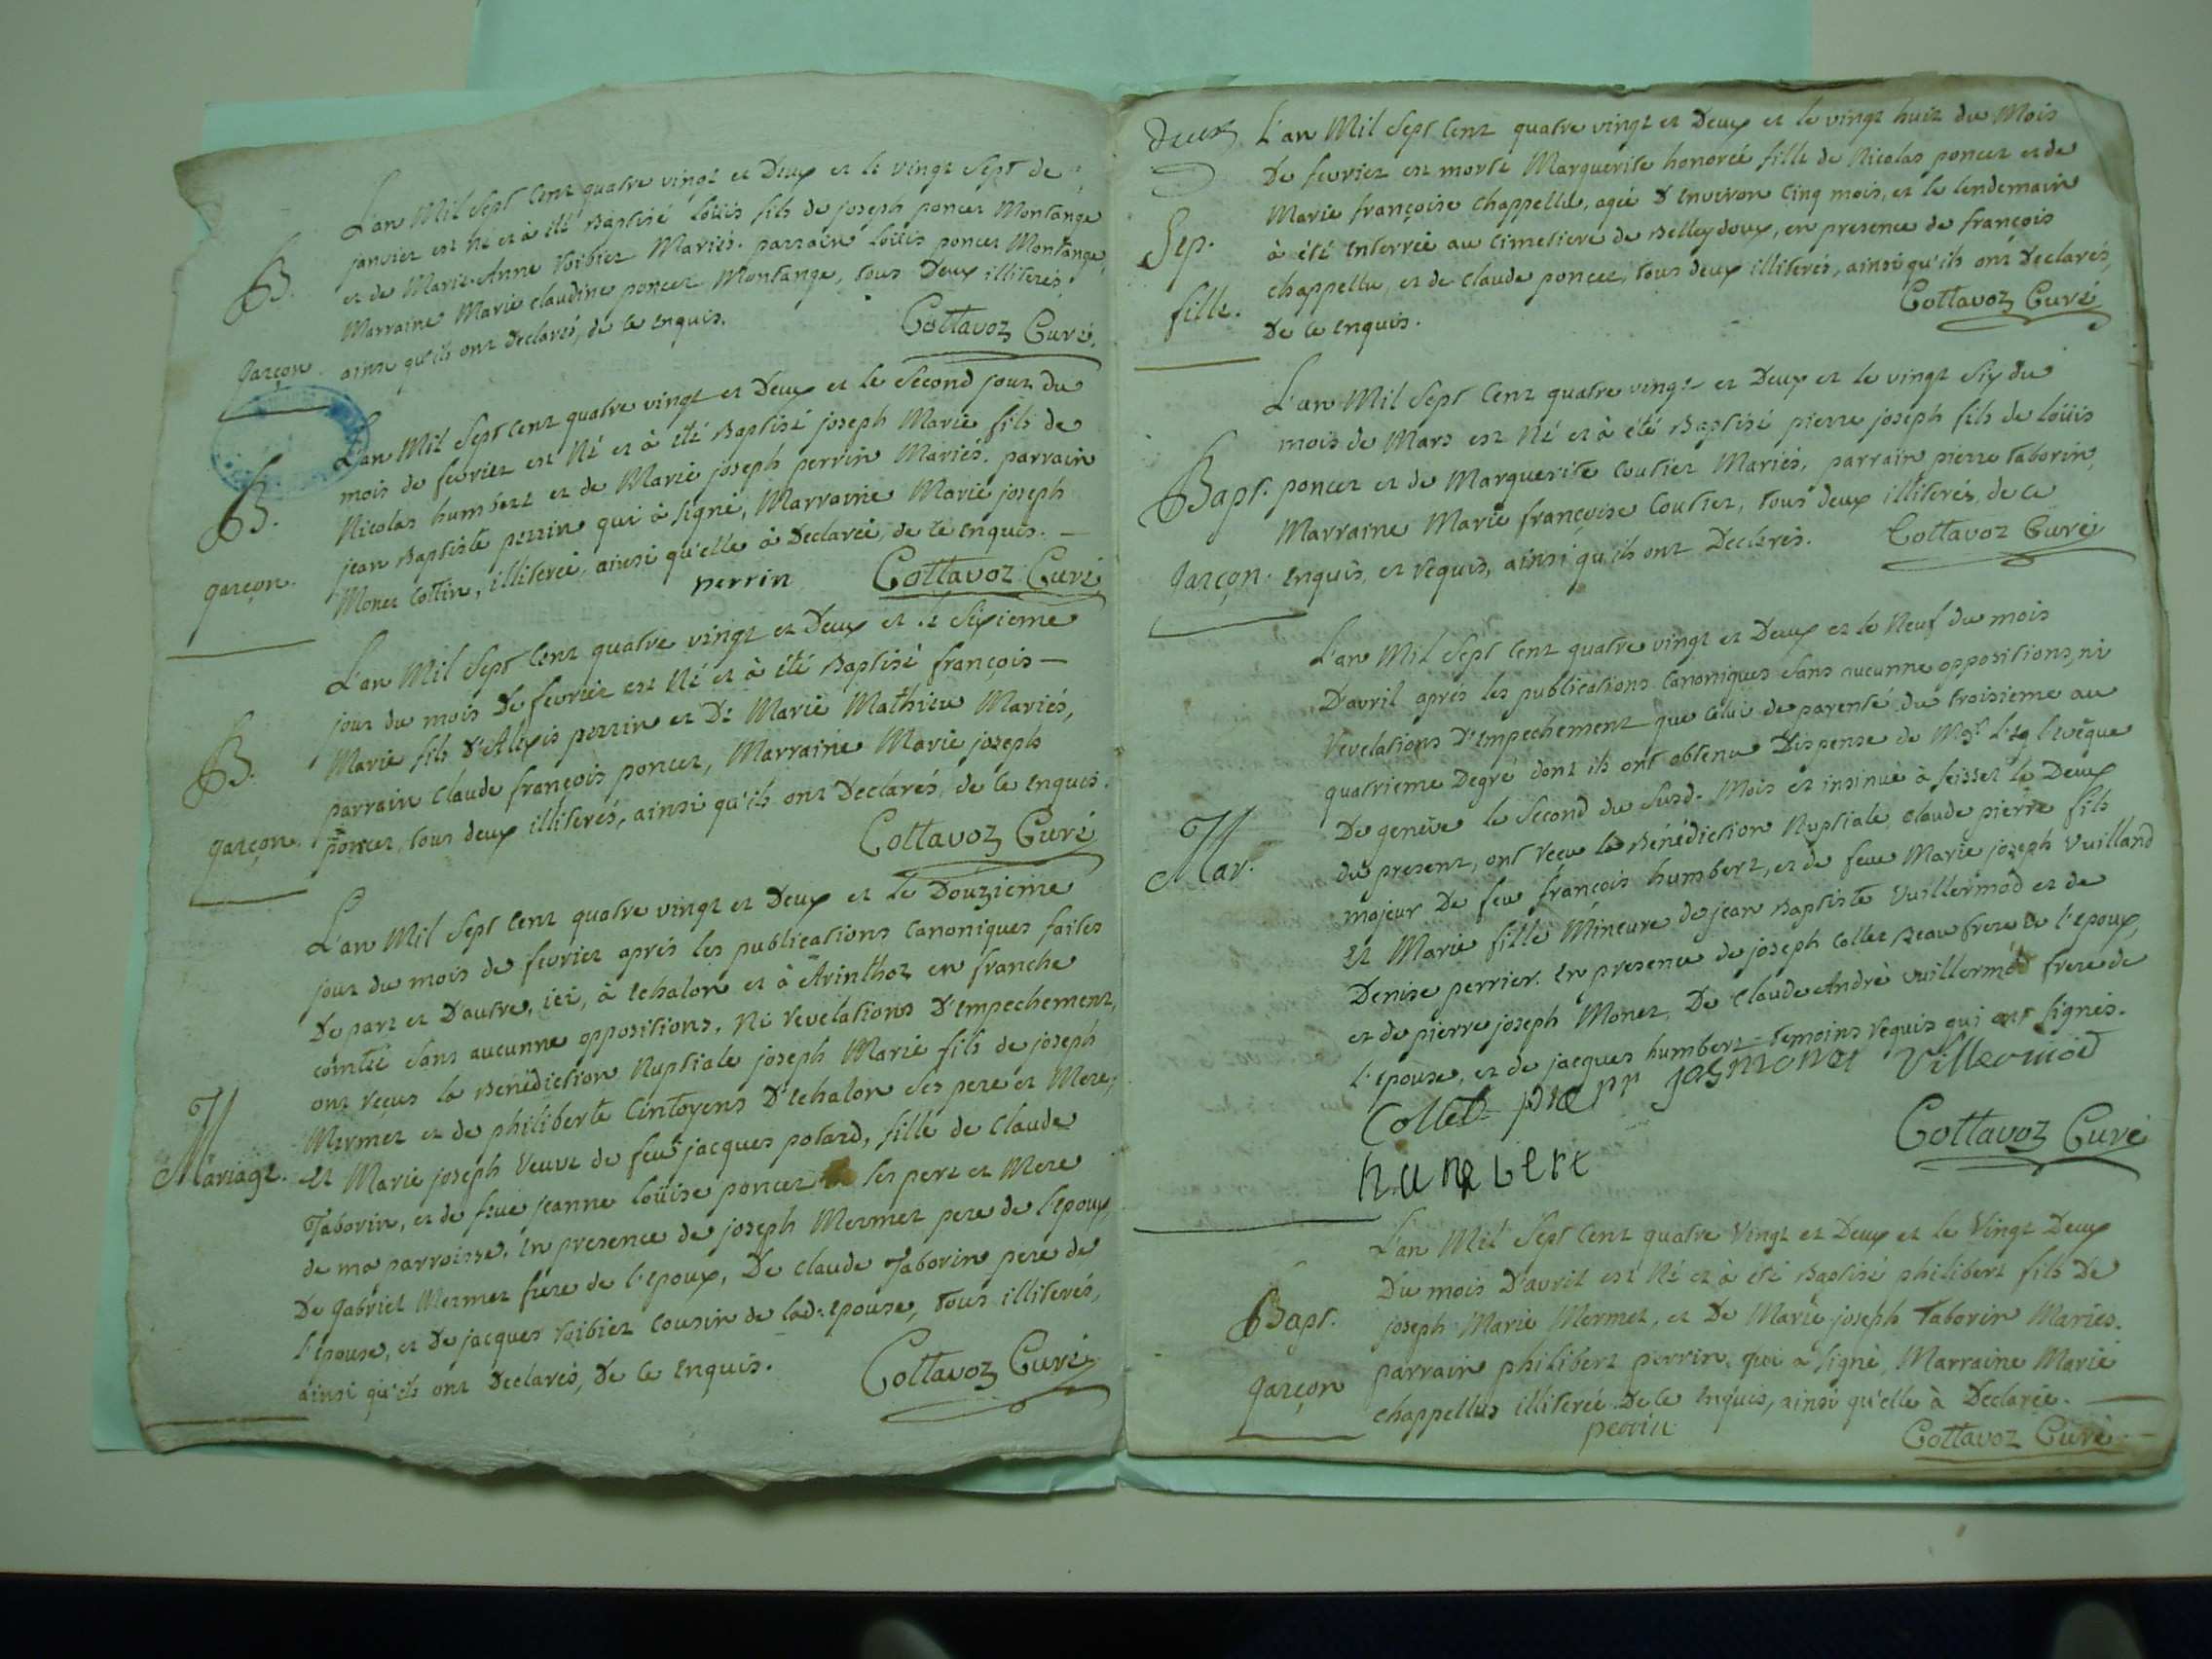 L'an Mil Sept Cent quatre vingt et Deux et le vingt Sept de
janvier est Né et à été Baptisé Loüis fils de joseph poncet Montange
B.
et de Marie-Anne Roibier Mariés. parrain Loüis poncet Montange,
Marraine Marie claudine poncet Montange, tous Deux illiterés,
garçon.
ainsi qu'ils ont Declarés, de ce enquis.
Cottavoz Curé.
L'an Mil Sept Cent quatre vingt et Deux et le Second jour du
mois de fevrier est Né et à été Baptisé joseph Marie fils de
B.
Nicolas humbert et de Marie joseph perrin Mariés. parrain
jean Baptiste perrin qui à signé, Marraine Marie joseph
garçon.
Monet Cottin, illiterée, ainsi qu'elle à Declarée, de ce enquis.
perrin Cottavoz Curé
L'an Mil Sept Cent quatre vingt et Deux et le Sixieme
jour du mois de fevrier est Né et à été Baptisé françois
B.
Marie fils d'Alexis perrin et De Marie Mathieu Mariés,
parrain Claude françois poncet, Marraine Marie joseph
garçon.
poncet, tous deux illiterés, ainsi qu'ils ont Declarés, de ce enquis.
Cottavoz Curé
L'an Mil Sept Cent quatre vingt et Deux et le Douzieme
jour du mois de fevrier aprés les publications Canoniques faites
De part et D'autre, ici, à echalon et à Arinthoz en franche
comté Sans aucunne oppositions, Ni revelations D'empechement,
ont reçus la Benédiction Nuptiale joseph Marie fils de joseph
Mermet et de philiberte Cintoyens D'echalon ses pere et Mere,
Mariage.
et Marie joseph Veuve de feu jacques potard, fille de Claude
Taborin, et de feue jeanne Loüise poncet ses pere et Mere
de ma parroisse. en presence de joseph Mermet pere de l'epoux,
De gabriel Mermet frere de l'epoux, De Claude Taborin pere de
l'epouse, et De jacques Roibier Cousin de lad: epouse, tous illiterés,
ainsi qu'ils ont Declarés, De ce enquis.
Cottavoz Curé
deux
L'an Mil Sept Cent quatre vingt et Deux et le vingt huit du Mois
De fevrier est morte Marguerite honorée fille de Nicolas poncet et de
Marie françoise Chappellu, agée D'environ Cinq mois, et le lendemain
Sep.
à été enterrée au Cimetiere de Belleydoux, en presence de françois
Chappellu, et de Claude poncet, tous deux illiterés, ainsi qu'ils ont Declarés,
fille.
De ce enquis.
Cottavoz Curé
L'an Mil Sept Cent quatre vingt et Deux et le vingt Six du
mois de Mars est Né et à été Baptisé pierre joseph fils de Loüis
Bapt.
poncet et de Marguerite Coutier Mariés, parrain pierre Taborin,
Marraine Marie françoise Coutier, tous deux illiterés, de ce
garçon.
enquis, et requis, ainsi qu'ils ont Declarés.
Cottavoz Curé
L'an Mil Sept Cent quatre vingt et Deux et le Neuf du mois
D'avril aprés les publications Canoniques Sans aucunne oppositions, ni
revelations D'empechement que celui de parenté du troisieme au
quatrieme Degré dont ils ont obtenu Dispense de Mgr. L'eq l'evêque
De genéve le Second du Susd. Mois et insinué à seissel le Deux
Mar.
du present, ont reçu la Bénédiction Nuptiale Claude pierre fils
majeur De feu françois humbert, et de feue Marie joseph Vuilland
et Marie fille Mineure de jean Baptiste Vuillermod et de
Denise perrier. en presence de joseph Collet Beau frere de l'epoux,
et de pierre joseph Monet, De Claude André Vuillermod frere de
l'epouse, et de jacques humbert temoins requis qui ont signés.
Collet Villermod
humbert
Cottavoz Curé
L'an Mil Sept Cent quatre Vingt et Deux et le Vingt Deux
Du mois D'avril est Né et à été Baptisé philibert fils De
Bapt.
joseph Marie Mermet, et De Marie joseph Taborin Mariés.
parrain philibert perrin, qui a signé, Marraine Marie
garçon
Chappellus illiterée De ce enquis, ainsi qu'elle à Declarée.
perrin
Cottavoz Curé